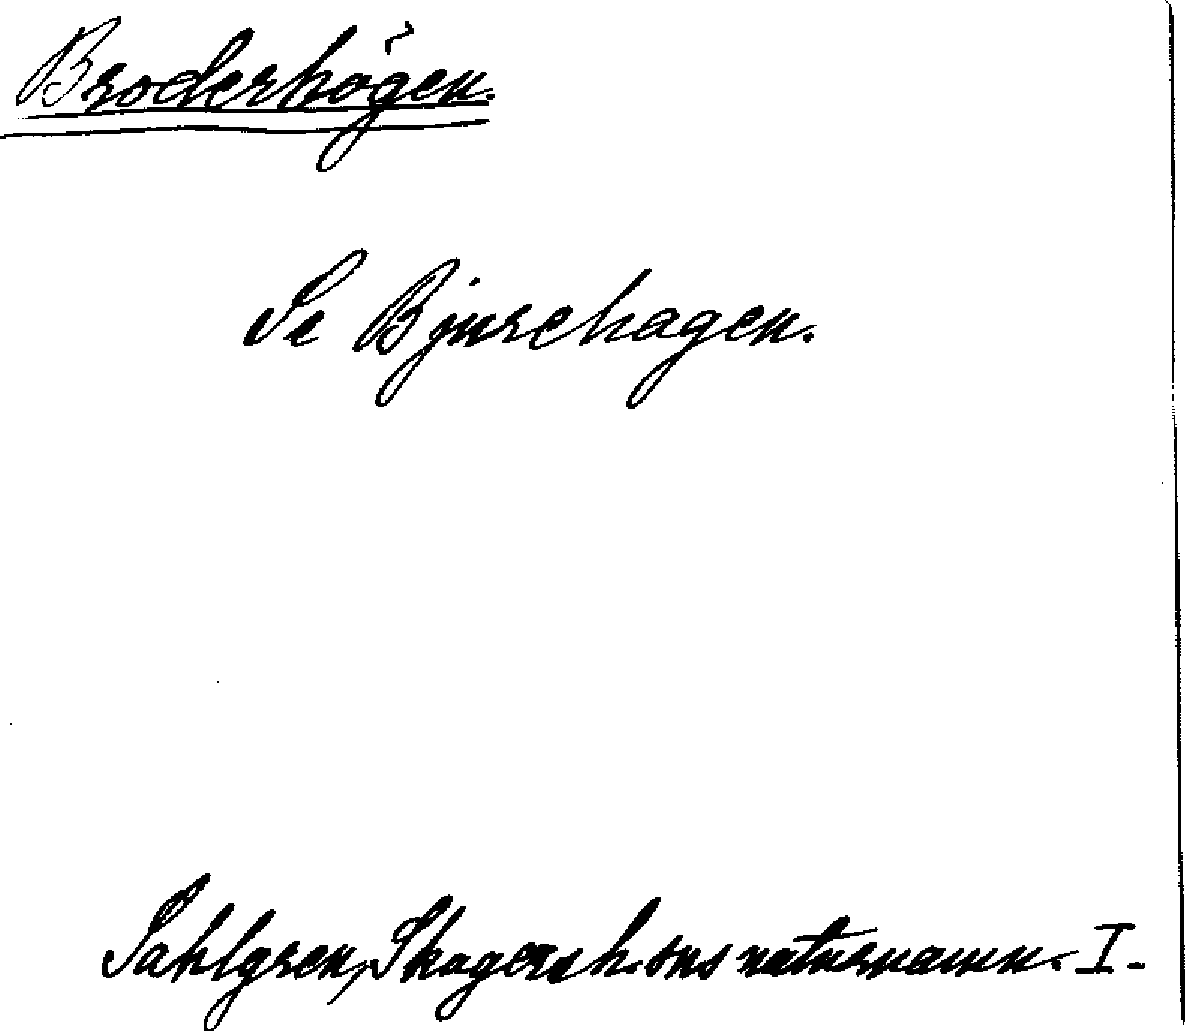 Broderhögen.
Se Bjurehagen.
Sahlgren, Skagersh:sns naturnamn. I.